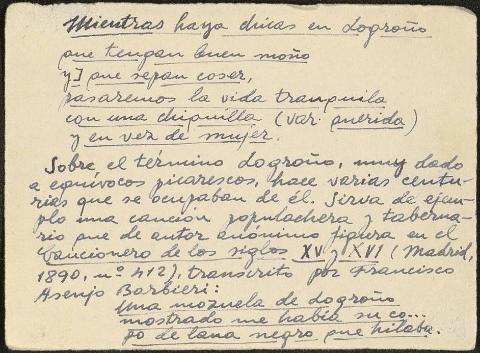 Mientras haya chicas en Logroño
que tengan buen moño
y] que sepan coser,
pasaremos la vida tranquila
con una chiquilla (var. querida)
y en vez de mujer.
Sobre el término Logroño, muy dado
a equívocos picarescos, hace varias centu-
rias que se ocupaban de él. Sirva de ejem-
plo una canción populachera y taberna-
rio que de autor anónimo figura en el
Cancionero de los siglos XV y XVI (Madrid,
1890, nº 412), transcrito por Francisco
Asenjo Barbieri:
Una mozuela de Logroño
mostrado me había su co...
po de lana negro que hilaba.